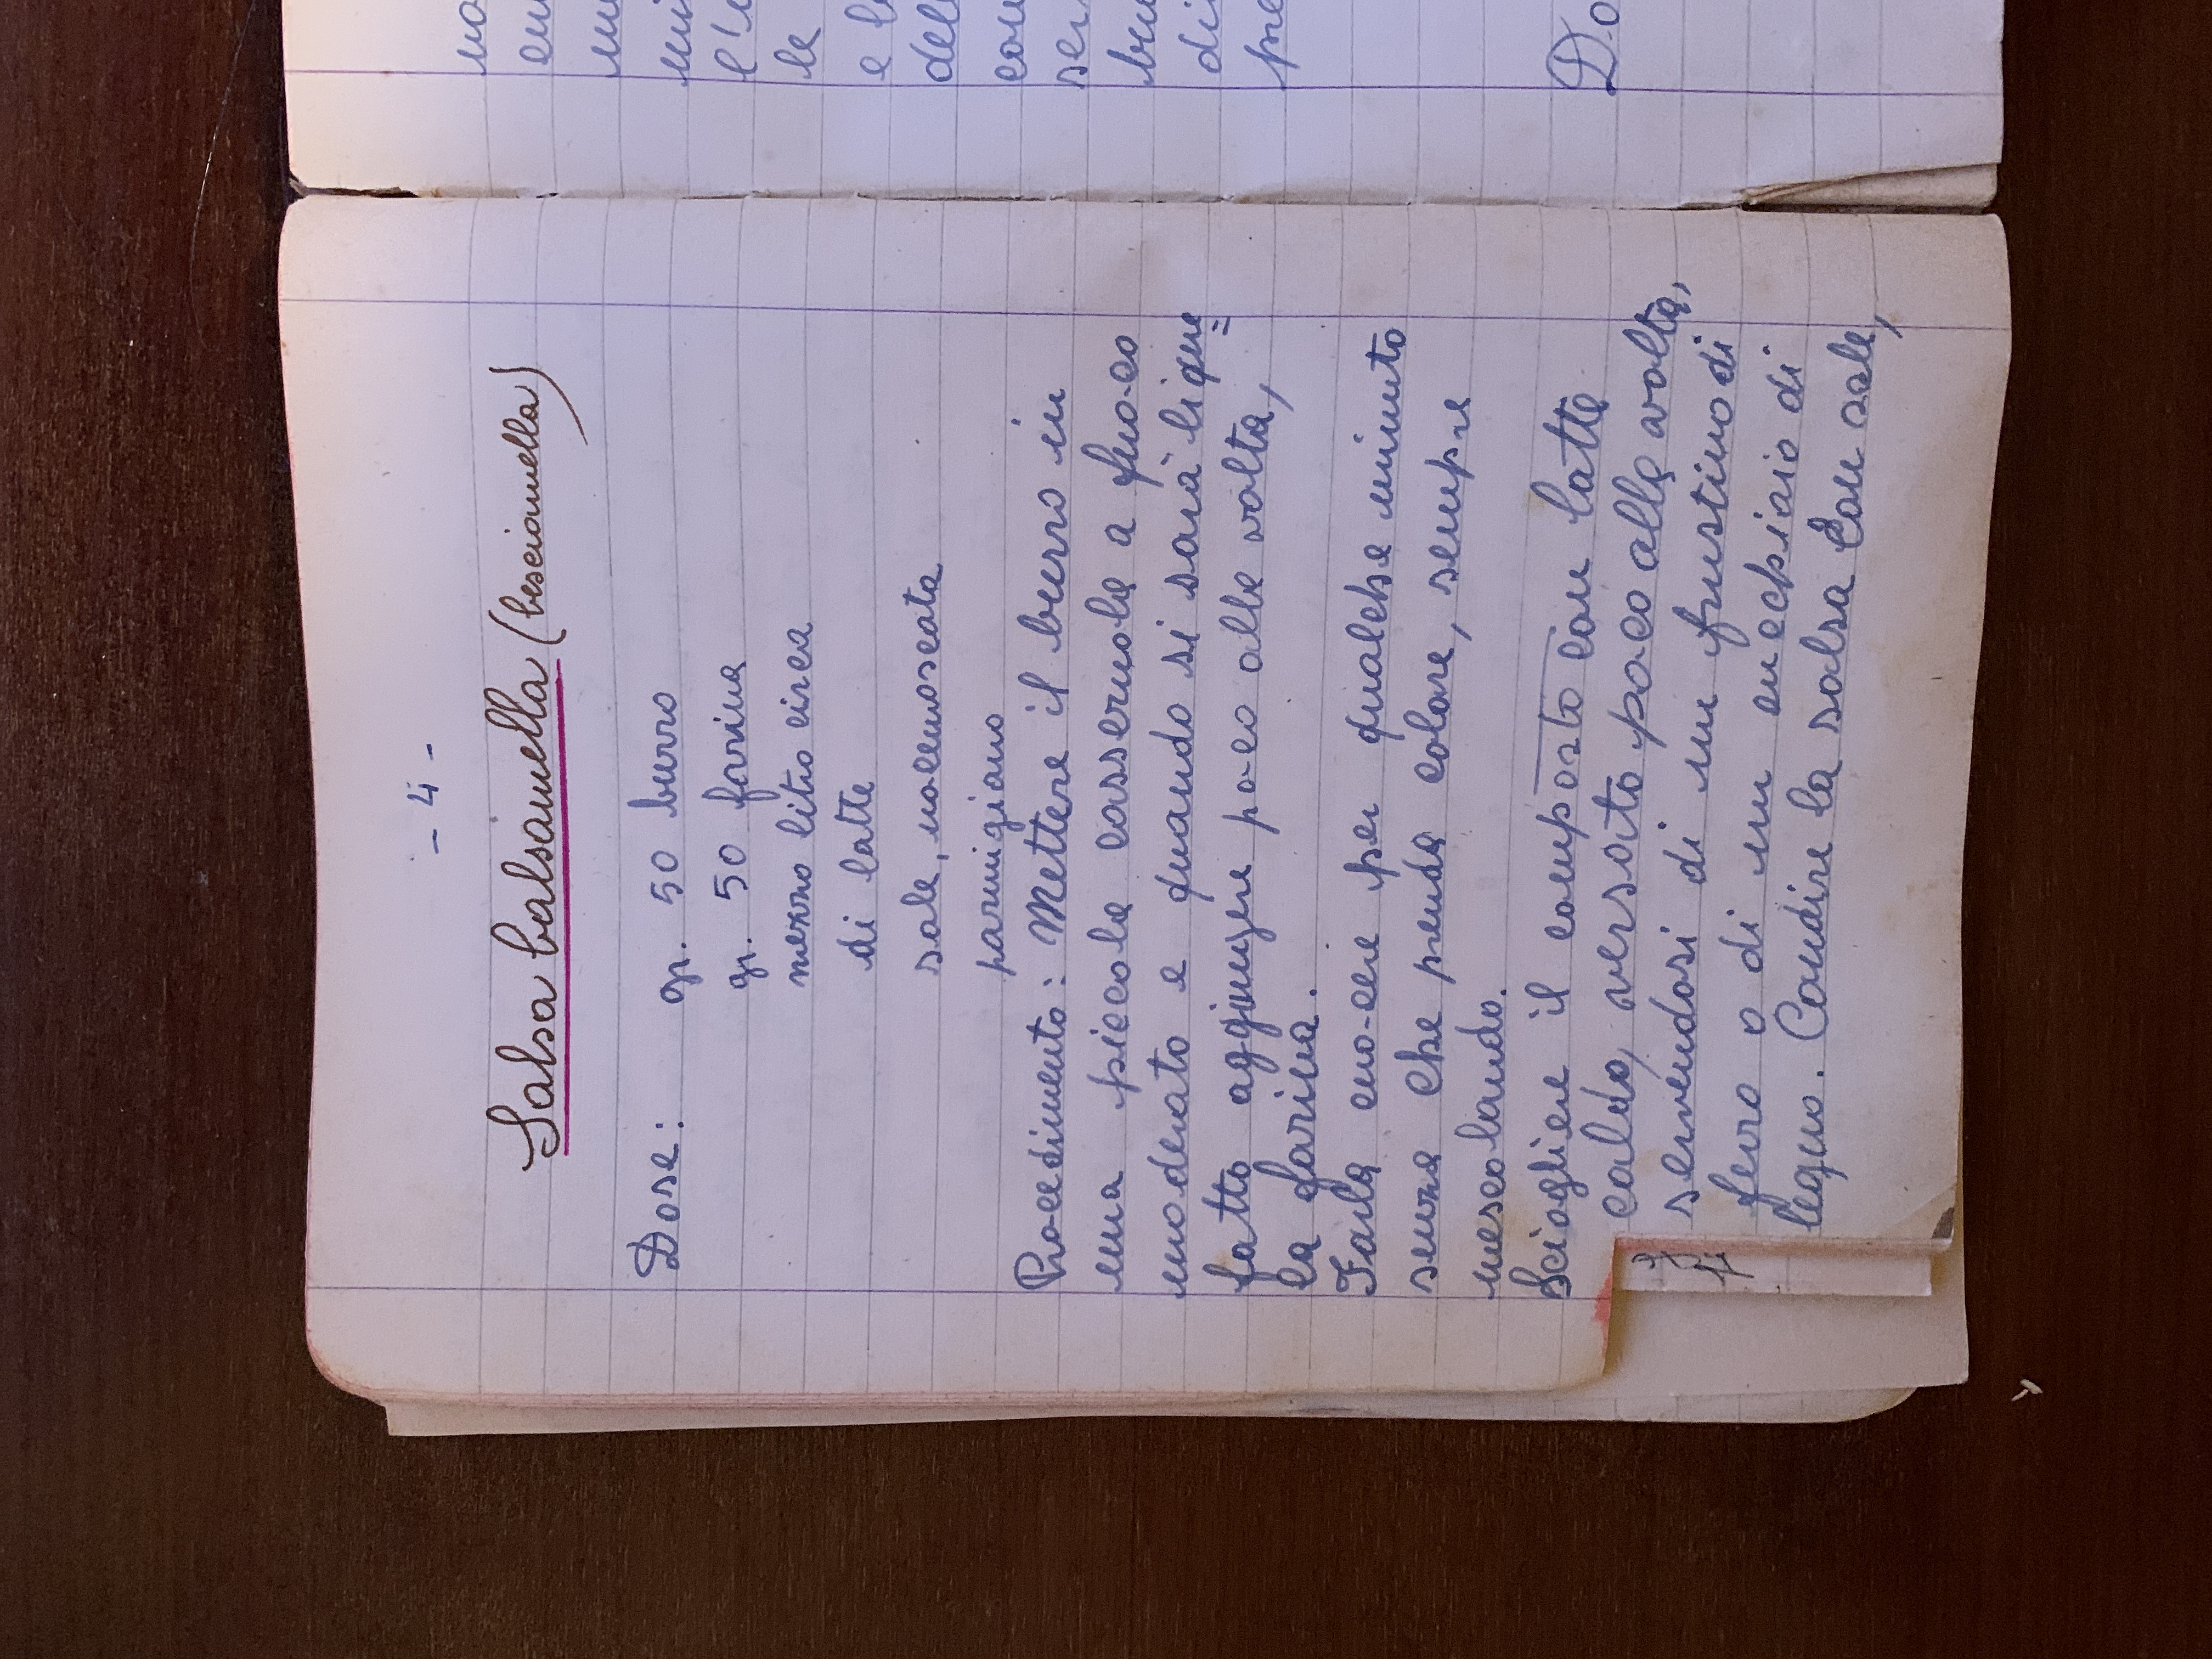 - 4 -
Salsa balsamella (besciamella)
Dose: gr. 50 burro
gr. 50 farina
mezzo litro circa
di latte
sale, nocemoscata
parmigiano
Procedimento: Mettere il burro in
una piccola casseruola a fuoco
moderato e quando si sarà lique=
fatto aggiungere poco alla volta,
la farina.
Farla cuocere per qualche minuto
senza che prenda colore, sempre
mescolando.
Sciogliere il composto con latte
caldo, versato poco alla volta,
servendosi di un frustino di
ferro o di un cucchiaio di
legno. Condire la salsa con sale,
no
le
e
del
Do